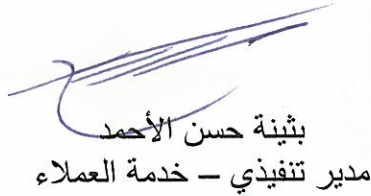 بثينة حسن الأحمد
مدير تنفيذي – خدمة العملاء